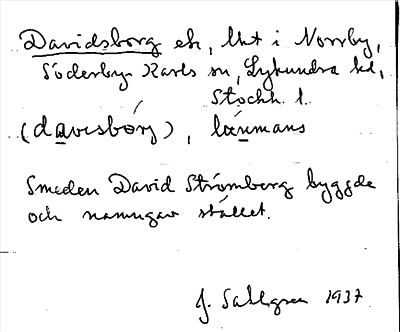 Davidsborg ek, lht i Norrby,
Söderby-Karls sn, Lyhundra hd,
Stockh. l.
(davisbórj), länmans
Smeden David Strömberg byggde
och namngav stället.
J. Sahlgren 1937